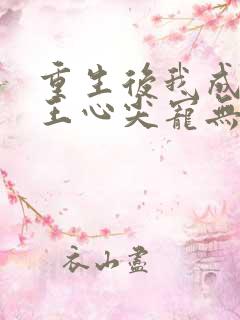 重生後我成
王心尖寵無
衣山盡